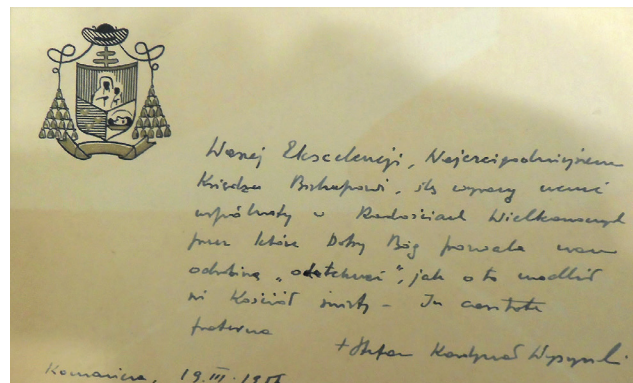 Waszej Ekscelencji, Najczcigodniejszemu
Księdzu Biskupowi, ślę wyrazy
wspólnoty w Radościach Wielkanocnych
przez które Dobry Bóg pozwala nam
odrobinę „odetchnąć”, jak o to modlił
się Kościół święty – In caritate
fraterna
+ Stefan Kardynał Wyszyński
Komańcza, 19.III.1956